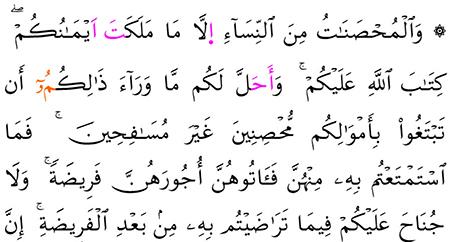 ۞ وَٱلْمُحْصَنَٰتُ مِنَ ٱلنِّسَآءِ اِلَّا مَا مَلَكَتَ اَيْمَٰنُكُمْ ۖ
كِتَٰبَ ٱللَّهِ عَلَيْكُمْ ۚ وَأَحَلَّ لَكُم مَّا وَرَآءَ ذَٰلِكُمُۥٓ أَن
تَبْتَغُوا۟ بِأَمْوَٰلِكُم مُّحْصِنِينَ غَيْرَ مُسَٰفِحِينَ ۚ فَمَا
ٱسْتَمْتَعْتُم بِهِۦ مِنْهُنَّ فَـَٔاتُوهُنَّ أُجُورَهُنَّ فَرِيضَةً ۚ وَلَا
جُنَاحَ عَلَيْكُمْ فِيمَا تَرَٰضَيْتُم بِهِۦ مِنۢ بَعْدِ ٱلْفَرِيضَةِ ۚ إِنَّ